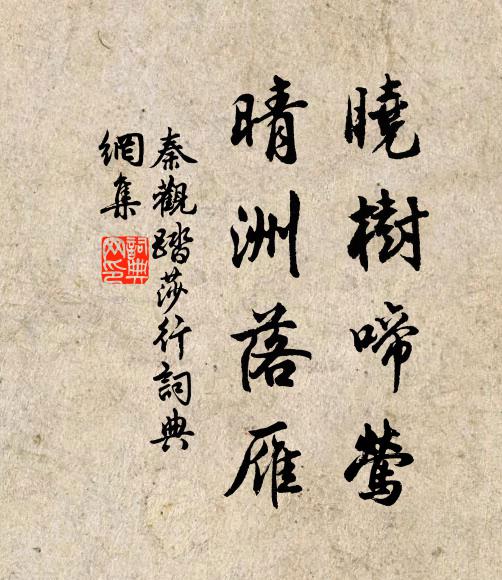 曉樹啼鶯
晴洲落雁
秦觀踏莎行詞典
網集
詞典
网印